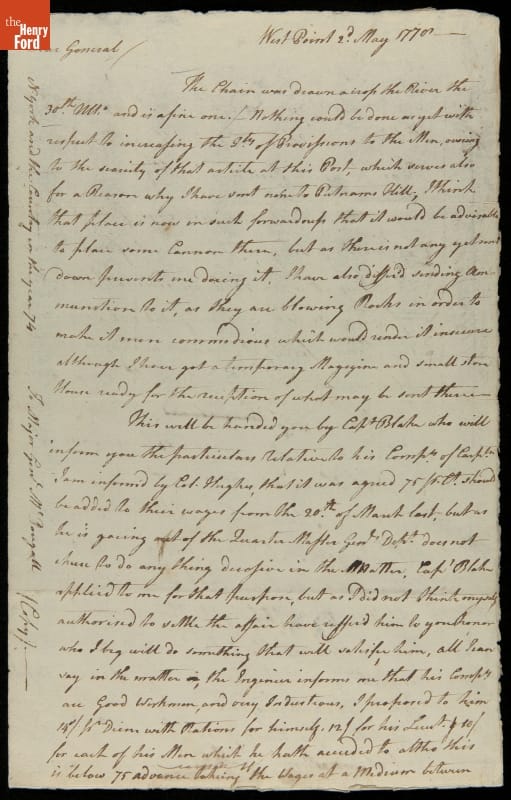 the
Henry
Ford
Dear General
West Point 2.d May 1778
The Chain was drawn across the River the
30.th Ult.o and is a fine one. Nothing could be done as yet with
respect to increasing the Q.ty of Provissions to the Men, owing
to the scarcity of that article at this Post, which serves also
for a Reason why I have sent none to Putnams Hill; I think
that place is now in such forwardness that it would be adviseable
to place some Cannon there, but as there is not any yet
down prevents me doeing it, I have also differd sending Am-
munition to it, as they are blowing Rocks in order to
make it more commodious which would render it insecure
although I have got a temporary Magezine and small store
House ready for the reception of what may be sent there
This will be handed you by Cap.t Blake who will
inform you the particulars relative to his Comp.y of Carp.trs
I am informd by Col. Hughes, that it was agreed 75 p.r C.t should
be added to their wages from the 20.th of March last, but as
he is goeing out of the Quarter Master Gen.l Dep.t does not
chuse to do any thing decesive in the Matter, Cap.t Blake
applied to me for that purpose, but as I did not think myself
authorised to settle the affair have refferd him to your honor
who I beg will do something that will satisfie him, all I can
say in the matter is, the Ingenier informs me that his Comp.y
are Good Workmen, and very Industrious, I proposed to him
15/ p.r Diem with Rations for himself. 12/ for his Lieut. & 10/
for each of his Men which he hath acceded to altho this
is below 75 advance takeing the wages at a Medium between
N York and the Country in the year 74
To Major Gen.l M.cDougall
(Copy)